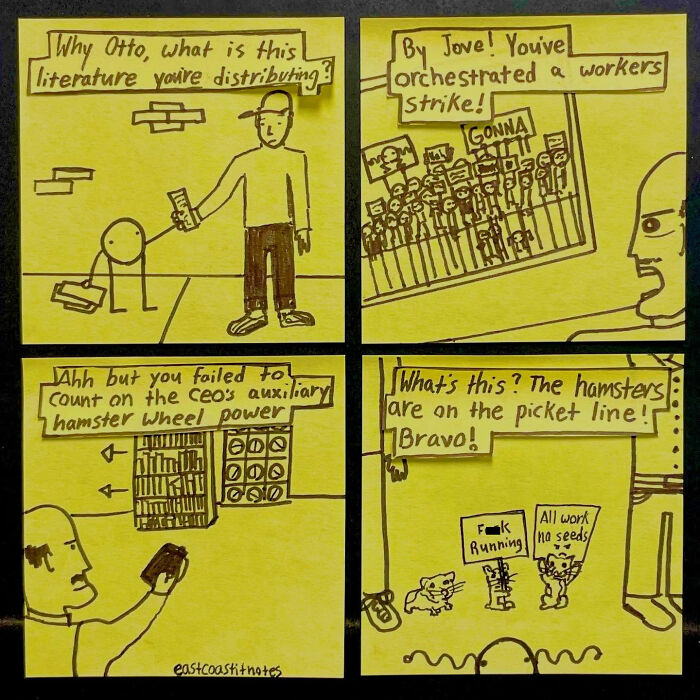 Why Otto, what is this
literature you're distributing?
By Jove! You've
orchestrated a workers
strike!
GONNA
Ahh but you failed to
count on the CEO's auxiliary
hamster wheel power
eastcoastitnotes
What's this? The hamsters
are on the picket line!
Bravo!
F■■k
Running
All work
no seeds